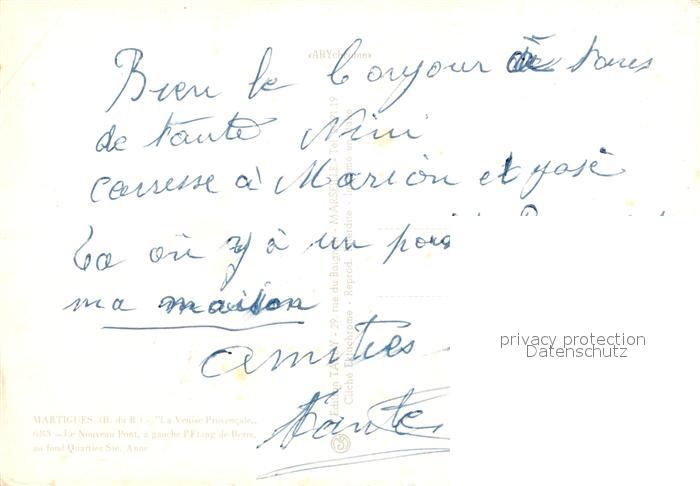 Bien le bonjour à tous
de tante Nini
carresse à Marion et josé
La où y à un poin
ma maison
amitiés
tante
«ARYchrome»
Edition TARDY - 29, rue du Baignoir - MARSEILLE - Tél.
Cliché Ektachrome - Reprod. interdite
MARTIGUES (B. du R.) - "La Venise Provençale„
Le Nouveau Pont, à gauche l'Etang de Berre,
au fond Quartier Ste. Anne
privacy protection
Datenschutz